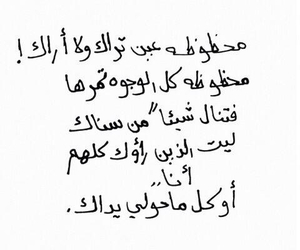 محظوظه عين تراك ولا أراك !
محظوظه كل الوجوه تمرها
فتنال شيئاً "من سناك
ليت الذين رأوك كلهم
أنا"
أو كل ما حولي يداك .